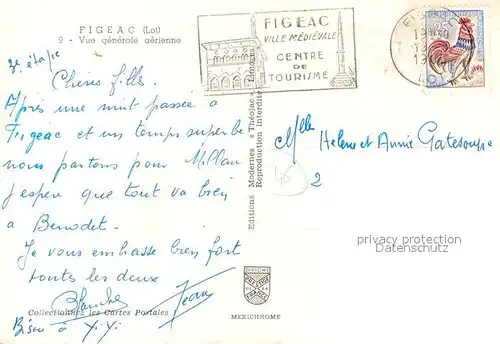 FIGEAC (Lot)
9 - Vue générale aérienne
2e étape
Chères filles.
Après une nuit passée à
Figeac et un temps superbe
nous partons pour Millau
j'espère que tout va bien
à Benodet.
Je vous embrasse bien fort
toutes les deux
Jean
Bisou à Yi Yi
Collectionnez les Cartes Postales !
Editions Modernes « Théojac » - Limoges
Reproduction Interdite
MEXICHROME
FIGEAC
VILLE MÉDIÉVALE
CENTRE
DE
TOURISME
Mlle Helene et Annie Gatesoupe
2
privacy protection
Datenschutz